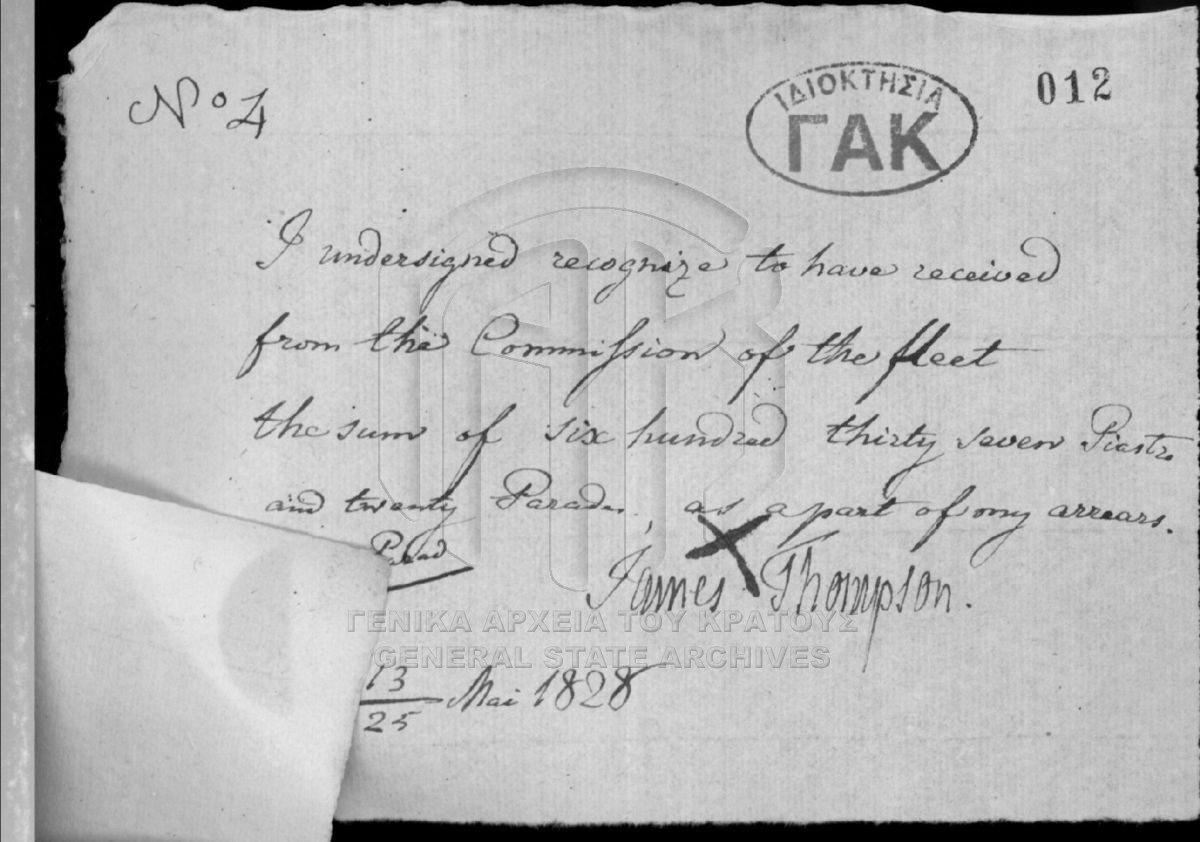 Nº 4
ΙΔΙΟΚΤΗΣΙΑ
ΓΑΚ
012
I undersigned recognize to have received
from the Commission of the fleet
the sum of six hundred thirty seven Piastr
and twenty Parades, as a part of my arrears.
Parad
James Thompson.
ΓΕΝΙΚΑ ΑΡΧΕΙΑ ΤΟΥ ΚΡΑΤΟΥΣ
GENERAL STATE ARCHIVES
13
25 Mai 1828